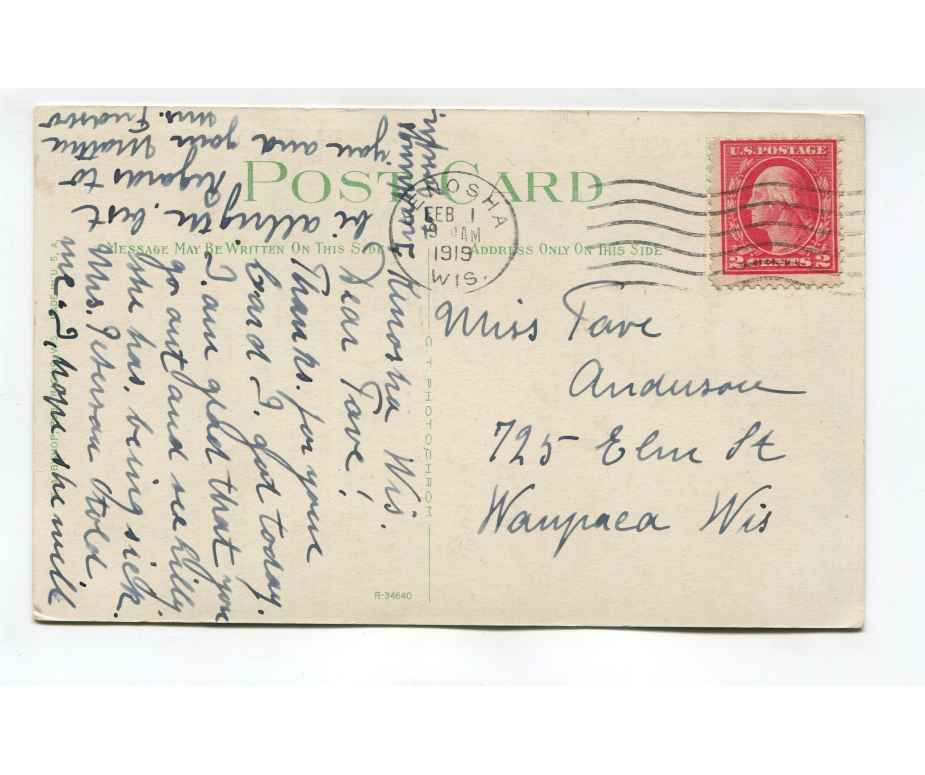 POST CARD
MESSAGE MAY BE WRITTEN ON THIS SIDE
ADDRESS ONLY ON THIS SIDE
KENOSHA
FEB 1
AM
1919
WIS.
U.S. POSTAGE
2 CENTS 2
Miss Tave
Anderson
725 Elm St
Waupaca Wis
Kenosha Wis.
Dear Tave!
Thanks. for your
card I. got today.
I. am glad that you
go out and see Lilly.
she has. being sick.
Mrs. Peterson told
me. I, hope she will
be allright. best
Regards to
you and your Mother
Mrs.
C T PHOTOCHROM
R-34640